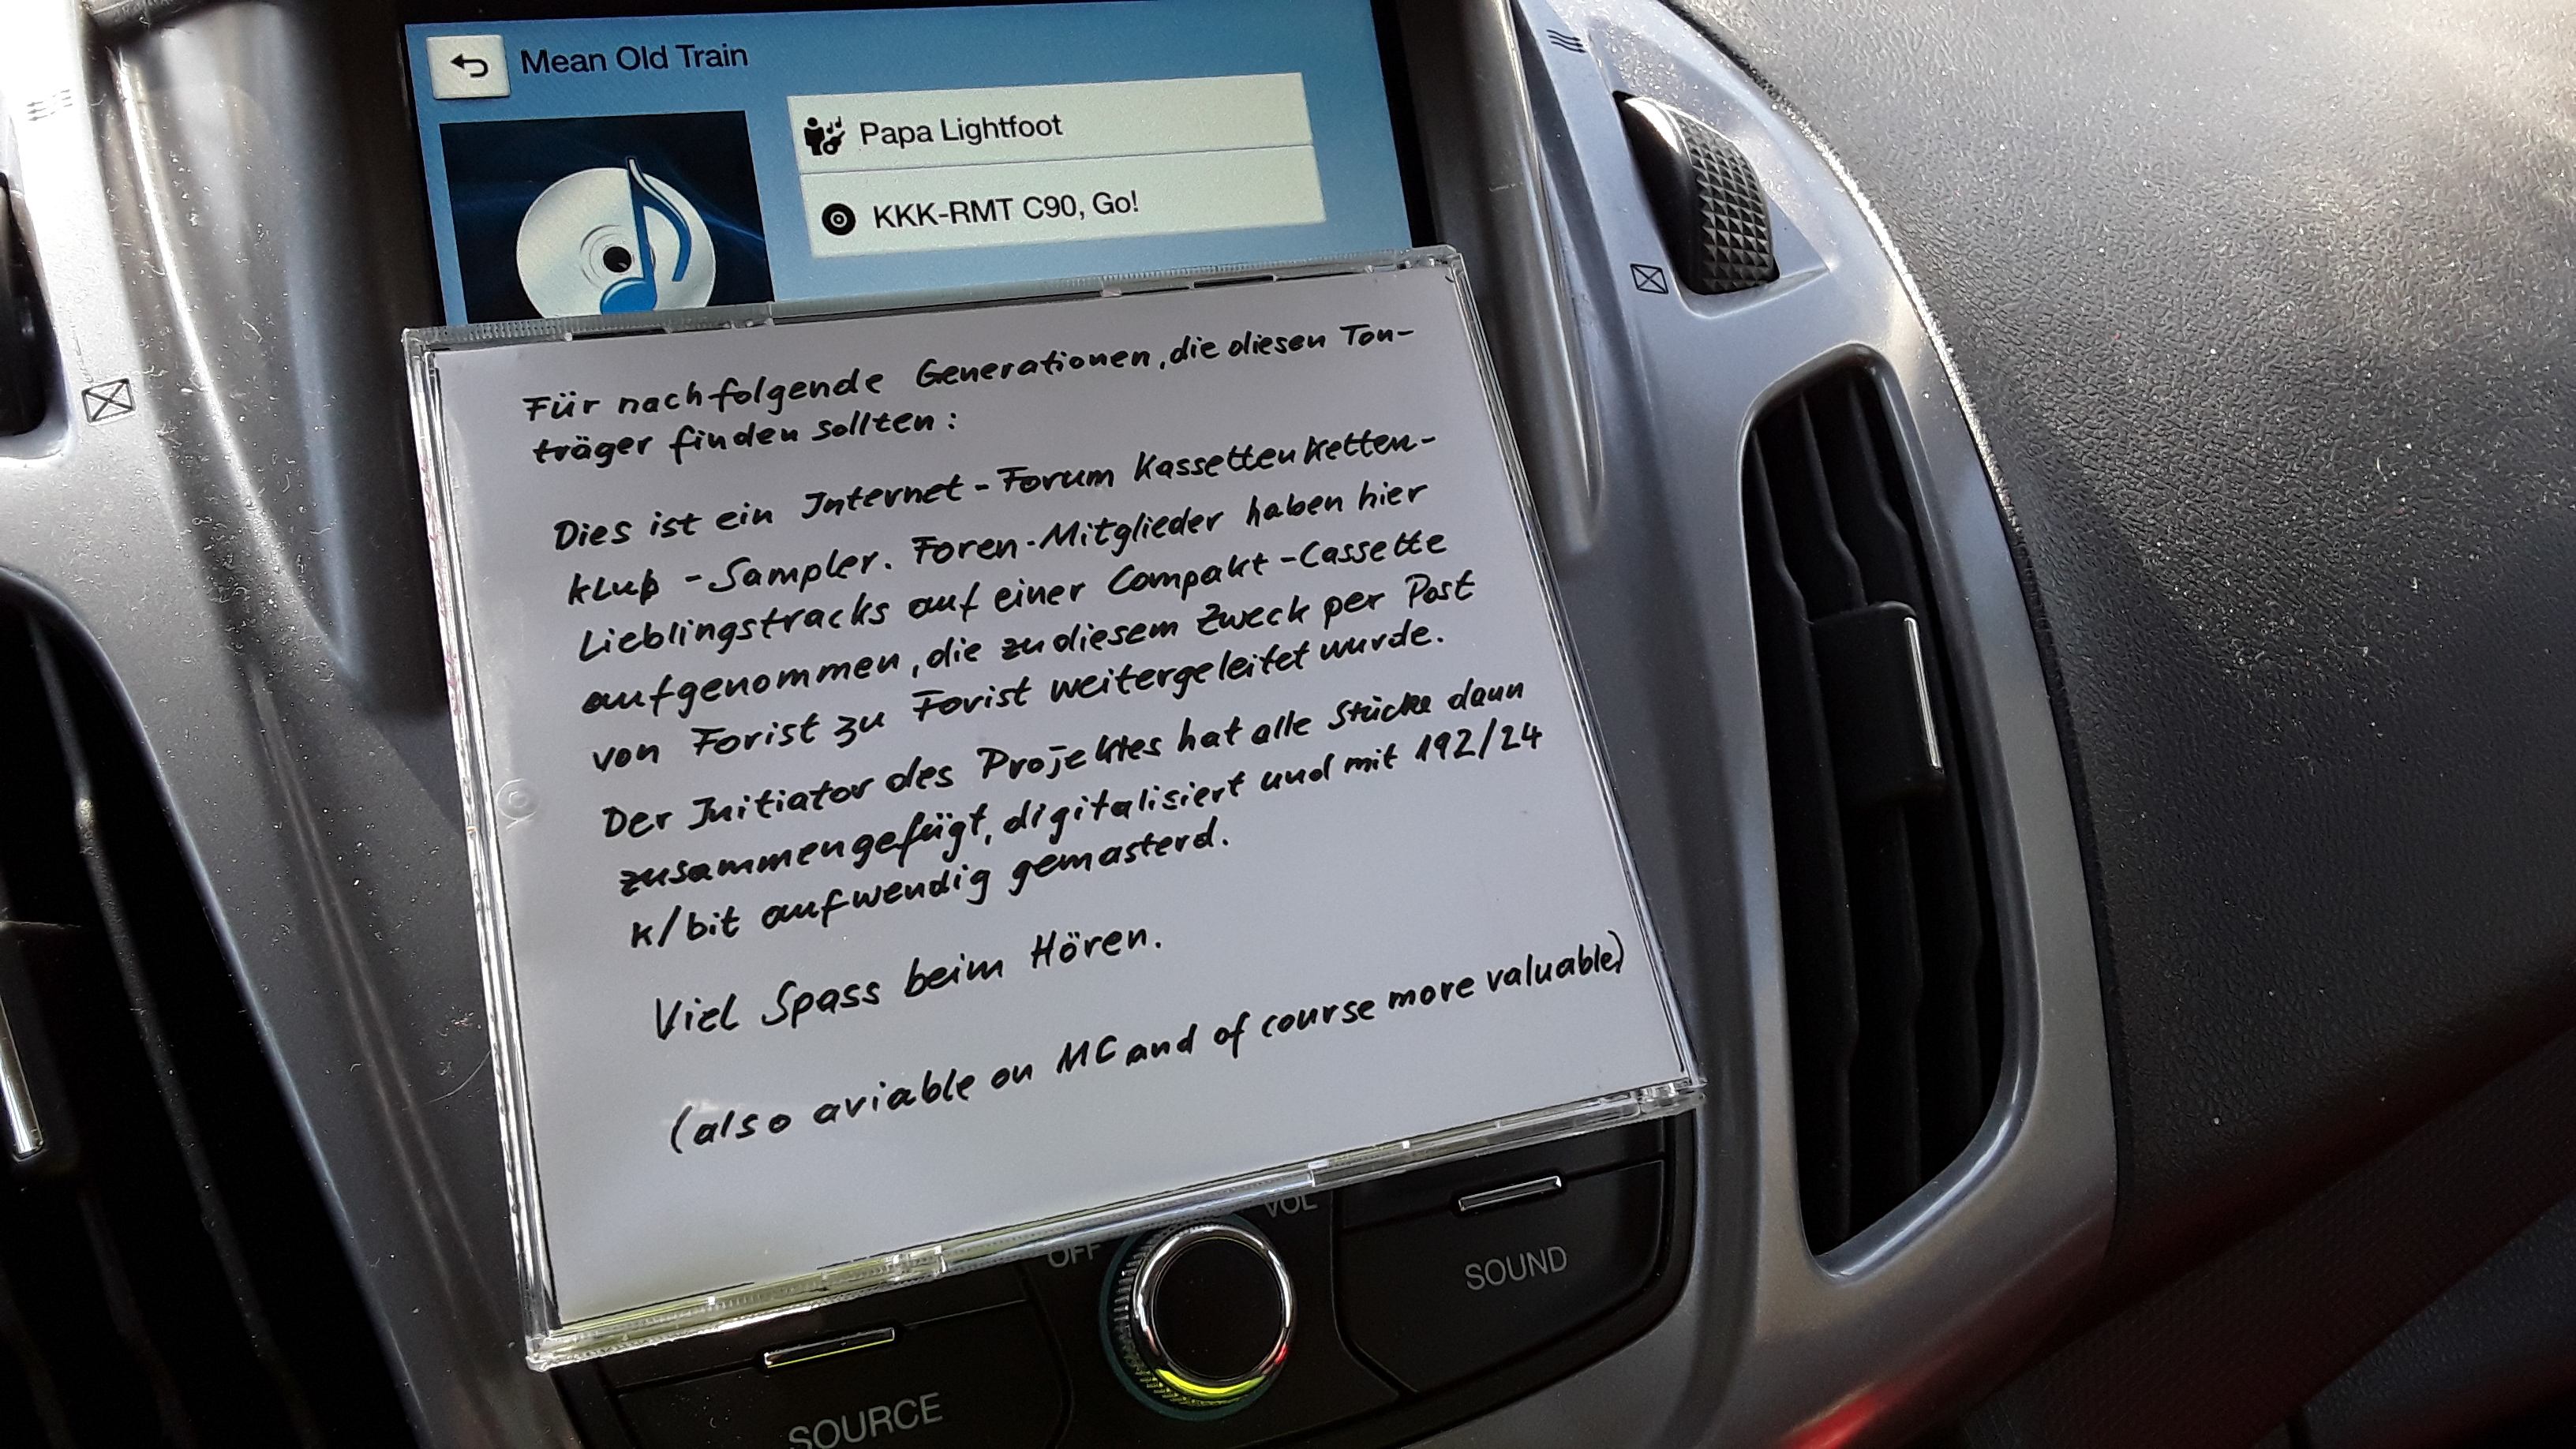 Mean Old Train
Papa Lightfoot
KKK-RMT C90, Go!
Für nachfolgende Generationen, die diesen Ton-
träger finden sollten:
Dies ist ein Internet-Forum Kassettenketten-
klub-Sampler. Foren-Mitglieder haben hier
Lieblingstracks auf einer Compakt-Cassette
aufgenommen, die zu diesem Zweck per Post
von Forist zu Forist weitergeleitet wurde.
Der Initiator des Projektes hat alle Stücke dann
zusammengefügt, digitalisiert und mit 192/24
k/bit aufwendig gemasterd.
Viel Spass beim Hören.
(also aviable on MC and of course more valuable)
OFF VOL
SOURCE SOUND